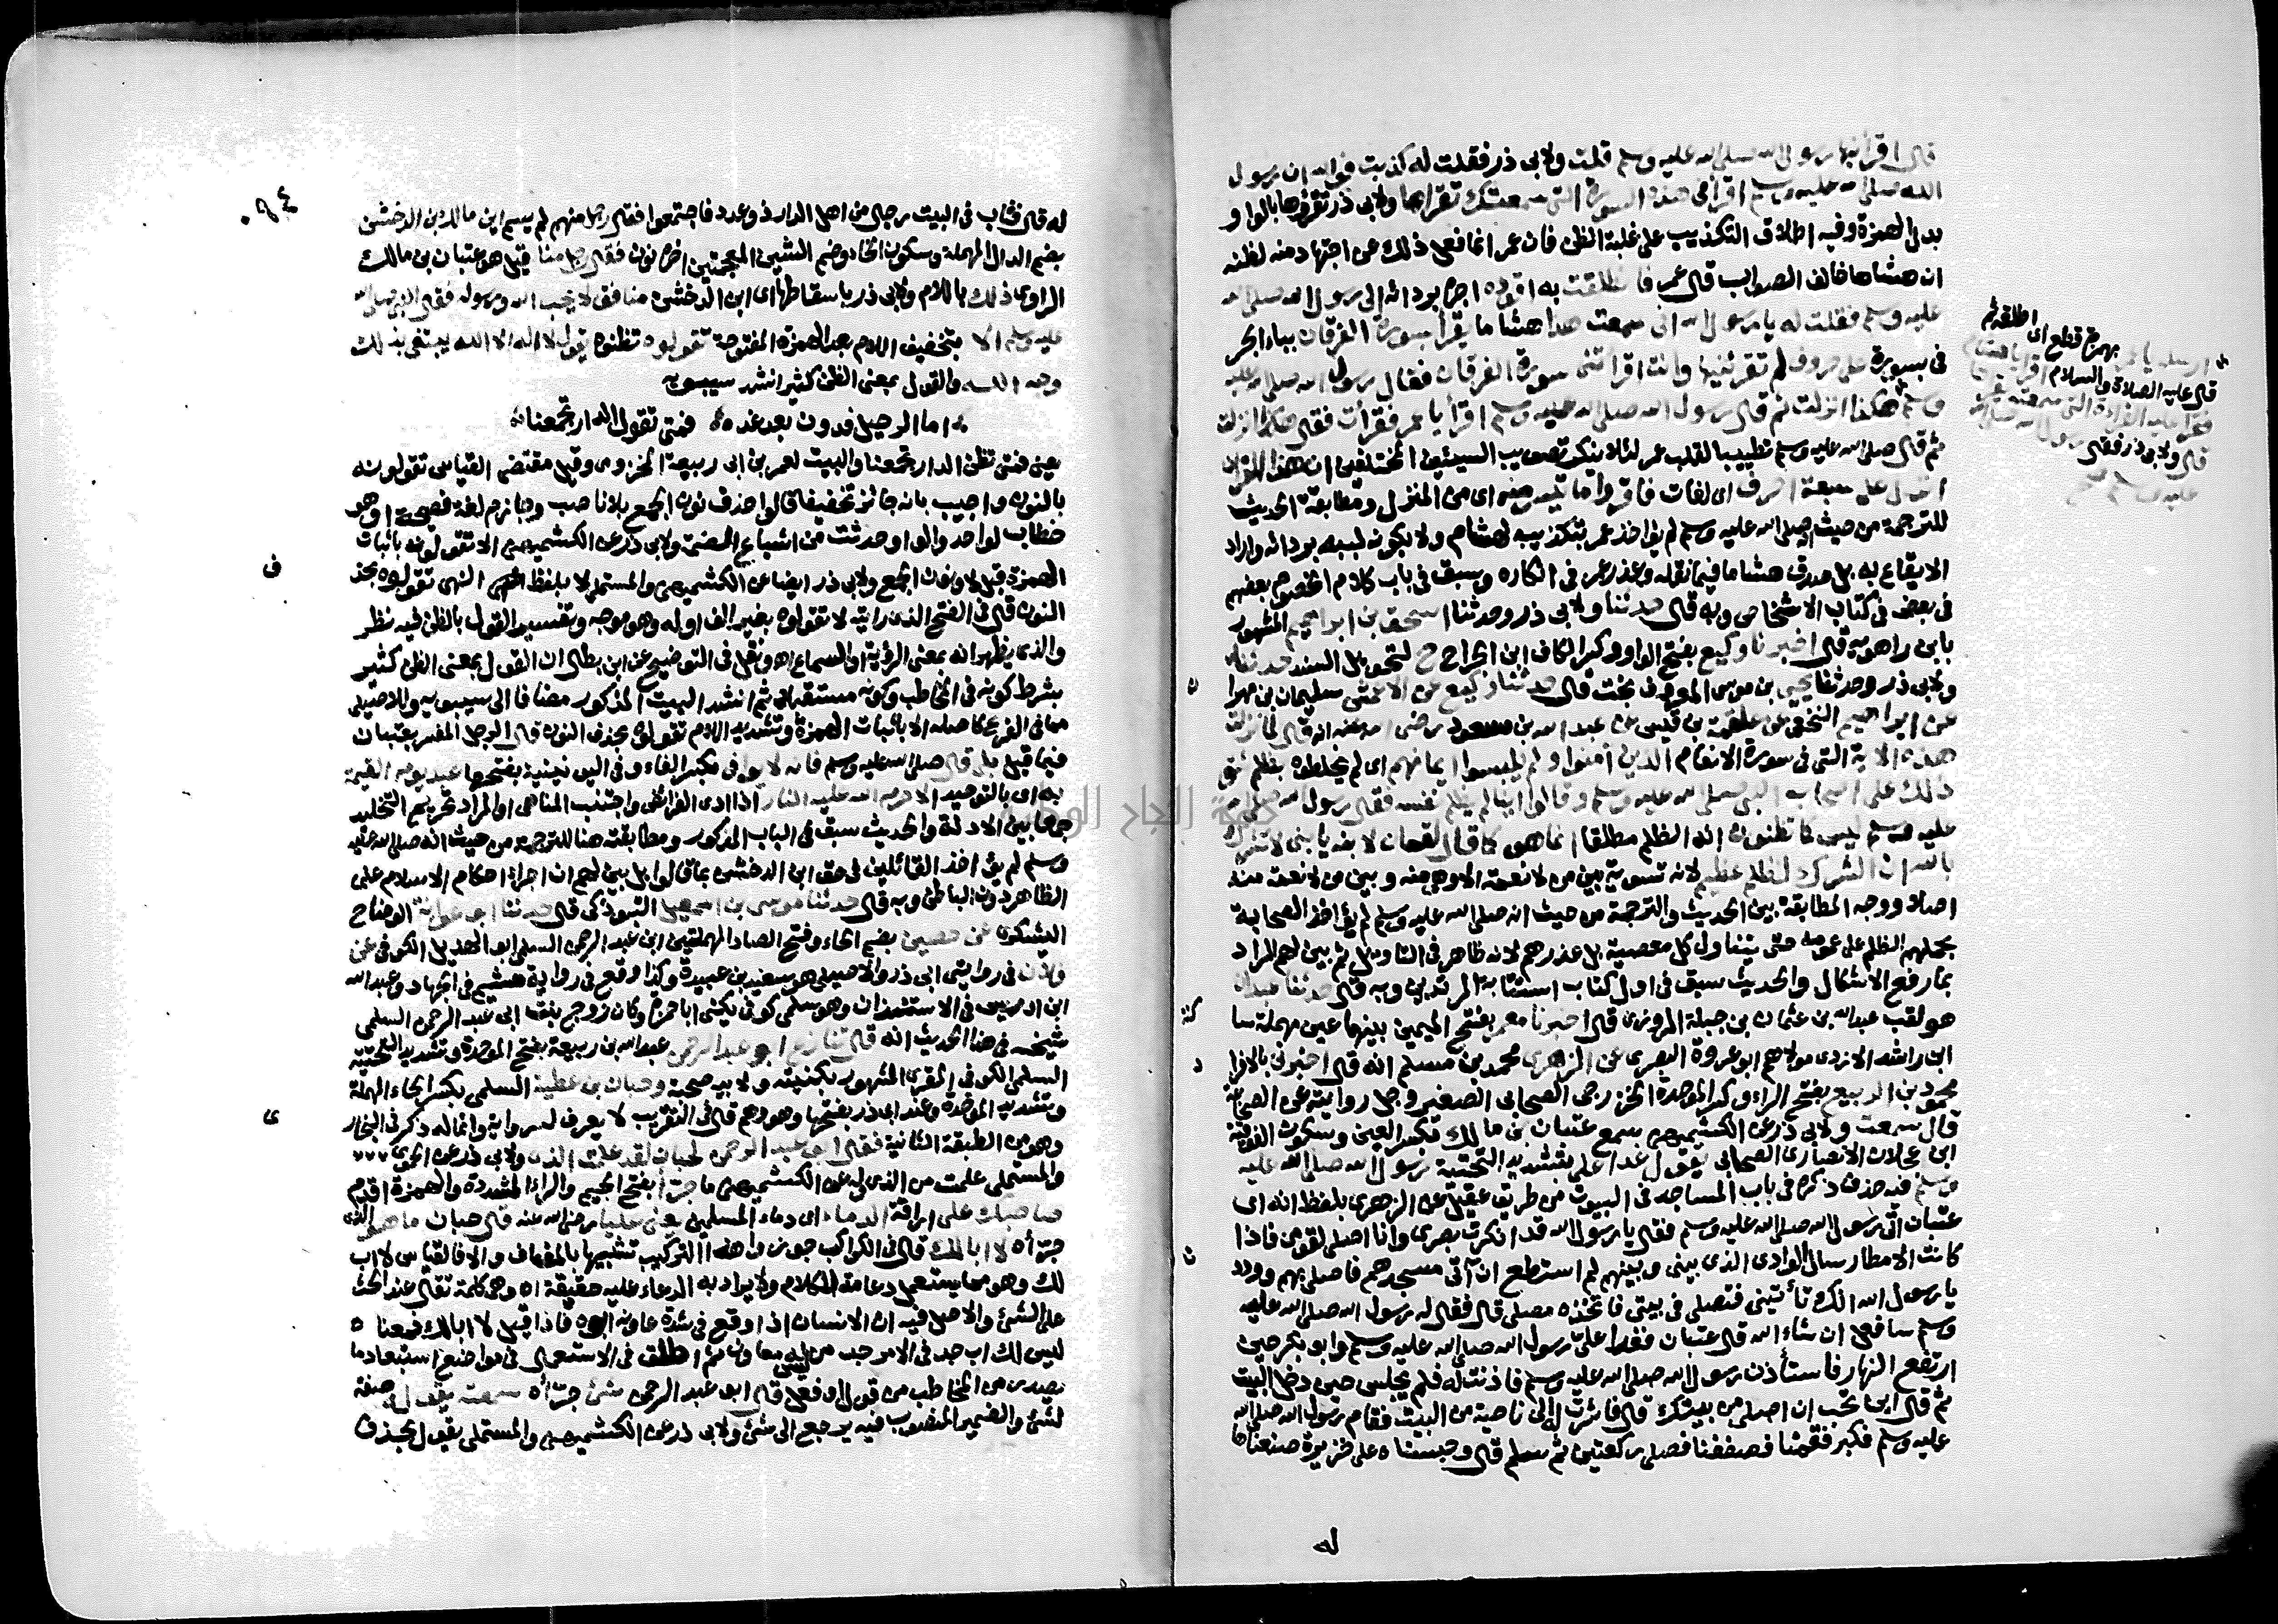 قال اقرأنيها رسول الله صلى الله عليه وسلم قلت ولابي ذر فقلت له كذبت فوالله ان رسول
الله صلى الله عليه وسلم اقرأني هذه السورة التي سمعتك تقرأها ولابي ذر تقرؤها بالواو
بدل الهمزة وفيه اطلاق التكذيب على غلبة الظن فان عمر انما فعل ذلك عن اجتهاد منه لظنه
ان هشاما خالف الصواب قال عمر فانطلقت به اقوده اجره بردائه الى رسول الله صلى الله
عليه وسلم فقلت له يا رسول الله اني سمعت هذا هشاما يقرأ بسورة الفرقان بباء الجر
في بسورة على حروف لم تقرئنيها وانت اقرأتني سورة الفرقان فقال رسول الله صلى الله عليه
وسلم هكذا انزلت ثم قال رسول الله صلى الله عليه وسلم اقرأ يا عمر فقرأت فقال هكذا انزلت
ثم قال صلى الله عليه وسلم تطييبا لقلب عمر لئلا ينكر تصويب السيئين المختلفين ان هذا القرآن
انزل على سبعة احرف اي لغات فاقرؤا ما تيسر منه اي من المنزل ومطابقة الحديث
للترجمة من حيث انه صلى الله عليه وسلم لم يؤاخذ عمر بتكذيبه لهشام ولا بكونه لببه بردائه واراد
الايقاع به بل صدق هشاما فيما نقله وعذر عمر في انكاره وسبق في باب كلام الخصوم بعضهم
في بعض في كتاب الاشخاص وبه قال حدثنا ولابي ذر وحدثنا اسحق بن ابراهيم المشهور
بابن راهويه قال اخبرنا وكيع بفتح الواو وكسر الكاف ابن الجراح ح لتحويل السند حدثنا
ولابي ذر وحدثنا يحيى بن موسى المعروف بخت قال حدثنا وكيع عن الاعمش سليمان بن مهران
عن ابراهيم النخعي عن علقمة بن قيس عن عبد الله بن مسعود رضي الله عنه انه قال لما نزلت
هذه الاية التي في سورة الانعام الذين آمنوا ولم يلبسوا ايمانهم اي لم يخلطوه بظلم شق
ذلك على اصحاب النبي صلى الله عليه وسلم وقالوا اينا لم يظلم نفسه فقال رسول الله صلى الله
عليه وسلم ليس كما تظنون انه الظلم مطلقا انما هو كما قال لقمان لابنه يا بني لا تشرك
بالله ان الشرك لظلم عظيم لانه تسوية بين من لا نعمة الا وهي منه وبين من لا نعمة منه
اصلا ووجه المطابقة بين الحديث والترجمة من حيث انه صلى الله عليه وسلم لم يؤاخذ الصحابة
بحملهم الظلم على عمومه حتى يتناول كل معصية بل عذرهم لانه ظاهر في التاويل ثم بين لهم المراد
بما رفع الاشكال والحديث سبق في اول كتاب استتابة المرتدين وبه قال حدثنا عبدان
هو لقب عبد الله بن عثمان بن جبلة المروزي قال اخبرنا معمر بفتح الميمين بينهما عين مهملة سا
كنة
ابن راشد الازدي مولاهم ابو عروة البصري عن الزهري محمد بن مسلم انه قال اخبرني بالافرا
د
محمود بن الربيع بفتح الراء وكسر الموحدة الخزرجي الصحابي الصغير وجل روايته عن الصحابة
قال سمعت ولابي ذر عن الكشميهني سمع عتبان بن مالك بكسر العين وسكون الفوقية
ابن عجلان الانصاري الصحابي يقول غدا على بتشديد التحتية رسول الله صلى الله عليه
وسلم فيه حذف ذكره في باب المساجد في البيوت من طريق عقيل عن الزهري بلفظ انه اى
عتبان اتى رسول الله صلى الله عليه وسلم فقال يا رسول الله قد انكرت بصري وانا اصلي لقومي فاذا
كانت الامطار سال الوادي الذي بيني وبينهم لم استطع ان آتي مسجدهم فاصلي بهم ووددت
يا رسول الله انك تأتيني فتصلي في بيتي فاتخذه مصلى قال فقال له رسول الله صلى الله عليه
وسلم سافعل ان شاء الله قال عتبان فغدا علىّ رسول الله صلى الله عليه وسلم وابو بكر حين
ارتفع النهار فاستأذن رسول الله صلى الله عليه وسلم فاذنت له فلم يجلس حين دخل البيت
ثم قال اين تحب ان اصلي من بيتك قال فاشرت له الى ناحية من البيت فقام رسول الله صلى الله
عليه وسلم فكبر فقمنا فصففنا فصلى ركعتين ثم سلم قال وحبسناه على خزيرة صنعناها
له
ارسله يا عمر بهمزة قطع اي اطلقه ثم
قال عليه الصلاة والسلام اقرأ يا هشام
فقرأ عليه القراءة التي سمعته يقرأ
قال ولابي ذر فقال رسول الله صلى الله
عليه وسلم
٠٩٤
له قال فثاب في البيت رجال من اهل الدار ذوو عدد فاجتمعوا فقال رجل منهم لم يسم اين مالك بن الدخشن
بضم الدال المهملة وسكون الخاء وضم الشين المعجمتين اخره نون فقال رجل منا قيل هو عتبان بن مالك
الراوي ذلك باللام ولابي ذر باسقاطها اى ابن الدخشن منافق لا يحب الله ورسوله فقال النبي صلى الله
عليه وسلم الا بتخفيف اللام بعد الهمزة المفتوحة تقولوه تظنوه يقول لا اله الا الله يبتغي بذلك
وجه الله والقول بمعنى الظن كثير انشد سيبويه
اما الرحيل فدون بعد غد فمتى تقول الدار تجمعنا
يعني فمتى تظن الدار تجمعنا والبيت لعمر بن ابي ربيعة المخزومي وقيل مقتضى القياس تقولونه
بالنون واجيب بانه جائز تخفيفا قالوا حذف نون الجمع بلا ناصب وجازم لغة فصيحة او هو
خطاب لواحد والواو حدثت من اشباع الضمة ولابي ذر عن الكشميهني الا تقولونه باثبات
الهمزة قبل لا ونون الجمع ولابي ذر ايضا عن الكشميهني والمستملي لا بلفظ النهي تقولوه بحذ
ف
النون قال في الفتح الذي رايته لا تقولوه بغير الف اوله وهو موجه وتفسير القول بالظن فيه نظر
والذي يظهر انه بمعنى الرؤية او السماع اهـ ونقل في التوضيح عن ابن بطال ان القول بمعنى الظن كثير
بشرط كونه في المخاطب وكونه مستقبلا ثم انشد البيت المذكور مضافا الى سيبويه وللاصيلي
مما في الفرع كاصله الا باثبات الهمزة وتشديد اللام تقولوه بحذف النون قال الرجل المفسر بعتبان
فيما قيل بلى قال صلى الله عليه وسلم فانه لا يوافي بكسر الفاء وفي اليونينية بفتحها عبد يوم القيمة
به اى بالتوحيد الا حرم الله عليه النار اذا ادى الفرائض واجتنب المناهي او المراد تحريم التخليد
جمعا بين الادلة والحديث سبق في الباب المذكور ومطابقته هنا للترجمة من حيث انه صلى الله عليه
وسلم لم يؤاخذ القائلين في حق ابن الدخشن بما قالوا بل بين لهم ان اجراء احكام الاسلام على
الظاهر دون الباطن وبه قال حدثنا موسى بن اسمعيل التبوذكي قال حدثنا ابو عوانة الوضاح
اليشكري عن حصين بضم الحاء وفتح الصاد المهملتين ابن عبد الرحمن السلمي ابو الهذيل الكوفي عن
فلان في روايتي ابي ذر والاصيلي هو سعيد بن عبيدة وكذا وقع في رواية هشيم في الجهاد وعبد الله
ابن ادريس في الاستئذان وهو سلمي كوفي يكنى ابا حمزة وكان زوج بنت ابي عبد الرحمن السلمي
شيخه في هذا الحديث انه قال تنازع ابو عبد الرحمن عبد الله بن ربيعة بفتح الموحدة وتشديد التحتية
السلمي الكوفي المقري المشهور بكنيته ولابيه صحبة وحبان بن عطية السلمي بكسر الحاء المهملة
وتشديد الموحدة وعند ابي ذر بفتحها وهو وهم قال في التقريب لا يعرف له رواية وانما له ذكر في البخار
ى
وهو من الطبقة الثانية فقال ابو عبد الرحمن لحبان لقد علمت الذي ولابي ذر عن الحموي
والمستملي علمت من الذي وله عن الكشميهني ما جرّأ بفتح الجيم والراء المشددة والهمزة اقدم
صاحبك على اراقة الدماء اى دماء المسلمين يعني عليا رضي الله عنه قال حبان ما هو الذي
جرّأه لا ابا لك قال في الكواكب جوزوا هذا التركيب تشبيها بالمضاف والا فالقياس لا اب
لك وهو مما يستعمل دعامة للكلام ولا يراد به الدعاء عليه حقيقة اه وهي كلمة تقال عند الحث
على الشئ والاصل فيه ان الانسان اذا وقع في شدة عاونه ابوه فاذا قيل لا ابا لك فمعناه
ليس لك اب جد في الامر جد من ليس له معاون ثم اطلق في الاستعمال في مواضع استبعاد ما
يصدر من المخاطب من قول او فعل قال ابو عبد الرحمن شئ جرّأه سمعته يقوله صفة
لشئ والضمير المنصوب فيه يرجع الى شئ ولابي ذر عن الكشميهني والمستملي يقول بحذف